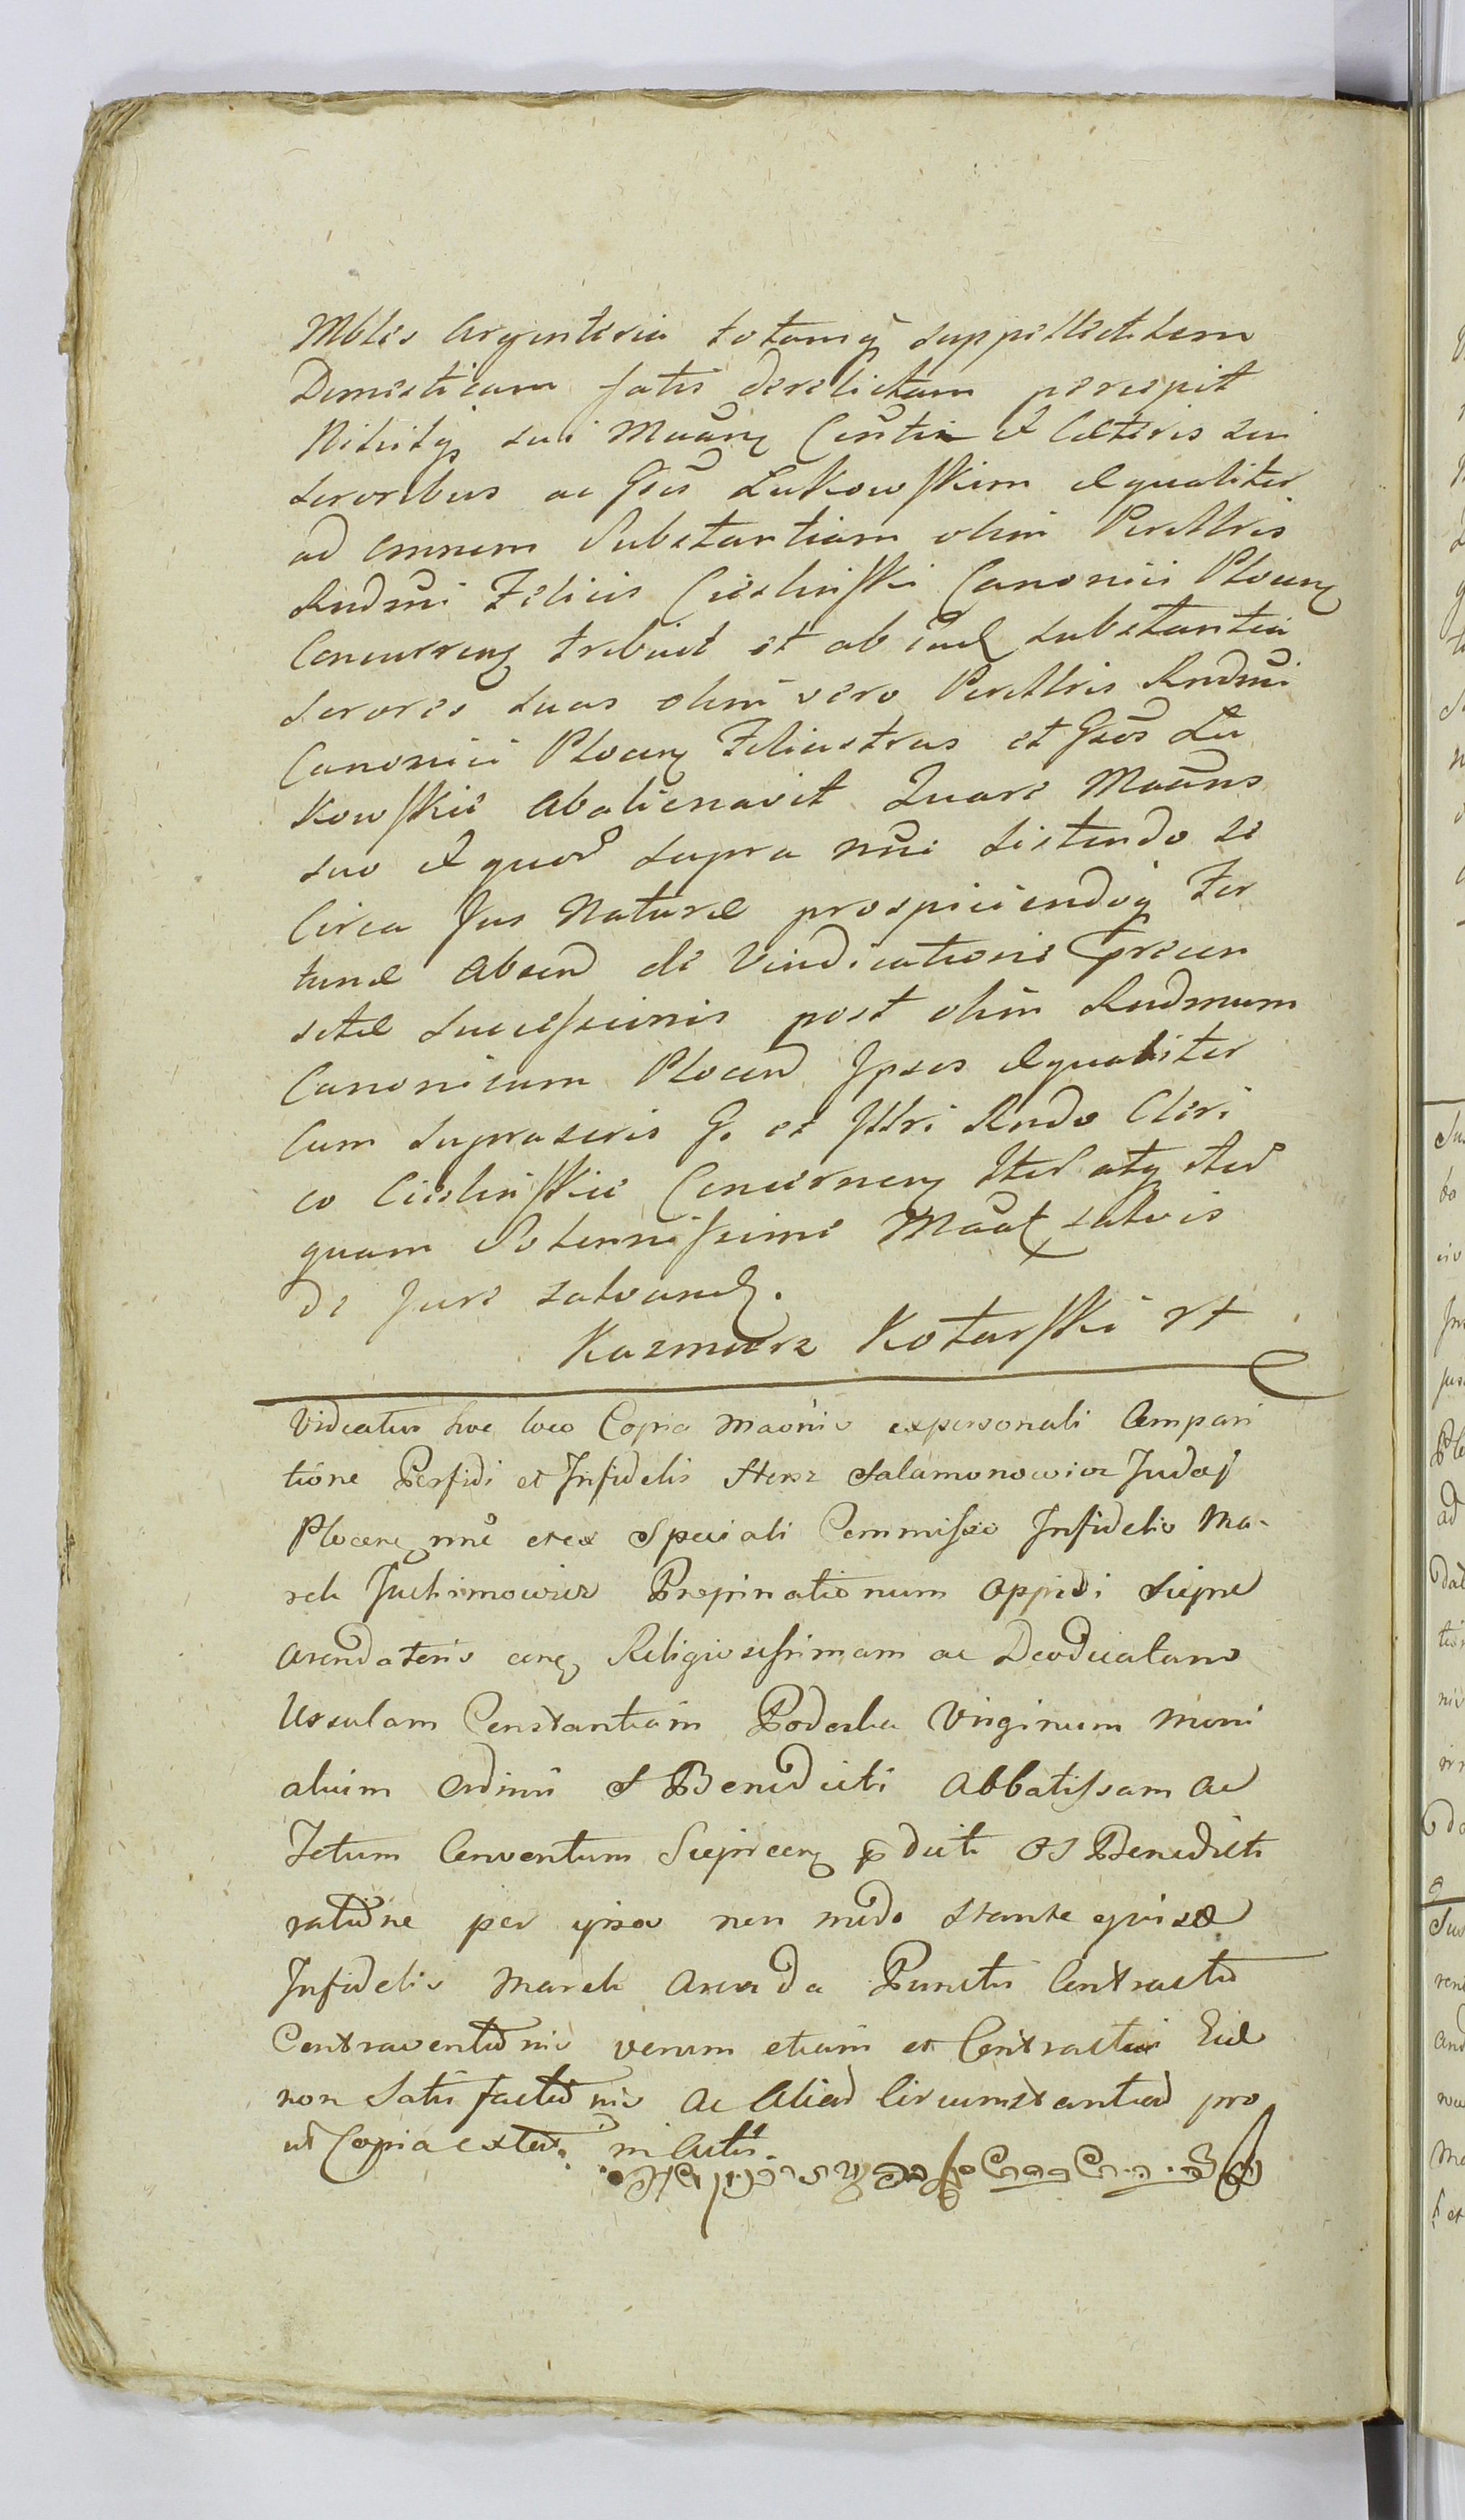 Mbles Argenteria totamq̃ suppellectilem
Domesticam fatis derelictam percepit
Nihilq̨ sui Maãnẹ Centia et Cæteris sui
sororibus ac Gsis Lukowſkim æqualiter
ad omnem Substantiam olim Perillris
Rndmi Felicis Cieslinſki Canonici Plocenẹ
Concurrenẹ tribuit et ab ead substantia
sorores suas olim vero Perillris Rndmi
Canonici Plocenẹ Filiastras et Gsos Lu
kowſkie Abalienavit Quare Maãns
suo et quod supra nũi sistendo se
Circa Jus Naturæ prospiciendoq̃ For
tunæ Absend de Vindicatione præcen
setæ succeſsionis post olim Rndmum
Canonicum Plocen Ipsos æqualiter
Cum suprascris G. et Jllri Rndo Cleri
co Cieslinſkie Concernenẹ Iter atq̨ Iter
quam Solenniſsime Maat salvis
de Jure salvand.
Kazmierz Kotarſki
Videatur hoc loco Copia Maõnis expersonali Compari
tione Perfidi et Infidelis Hersz Salamonowicz Judæi
Plocenẹ nnẽ et ex Speciali Commiſso Infidelis Ma-
rek Juchimowicz Propinationum Oppidi Sieprc
Arendatoris cirẹ Religiosiſsimam ac Deodicatam
Ursulam Constantiam Podoska Virginum Moni
alium Ordinis S Benedicti Abbatiſsam ac
Totum Conventum Sieprcenẹ dicti OS Benedicti
ratione per ipsos non modo stante
Infidelis Marek Arenda Punctis Contractus
Contraventionis verum etiam et Contractui Eid
non Satisfactionis ac Aliad Circumstantiad pro
ut Copia extens. in Actis.